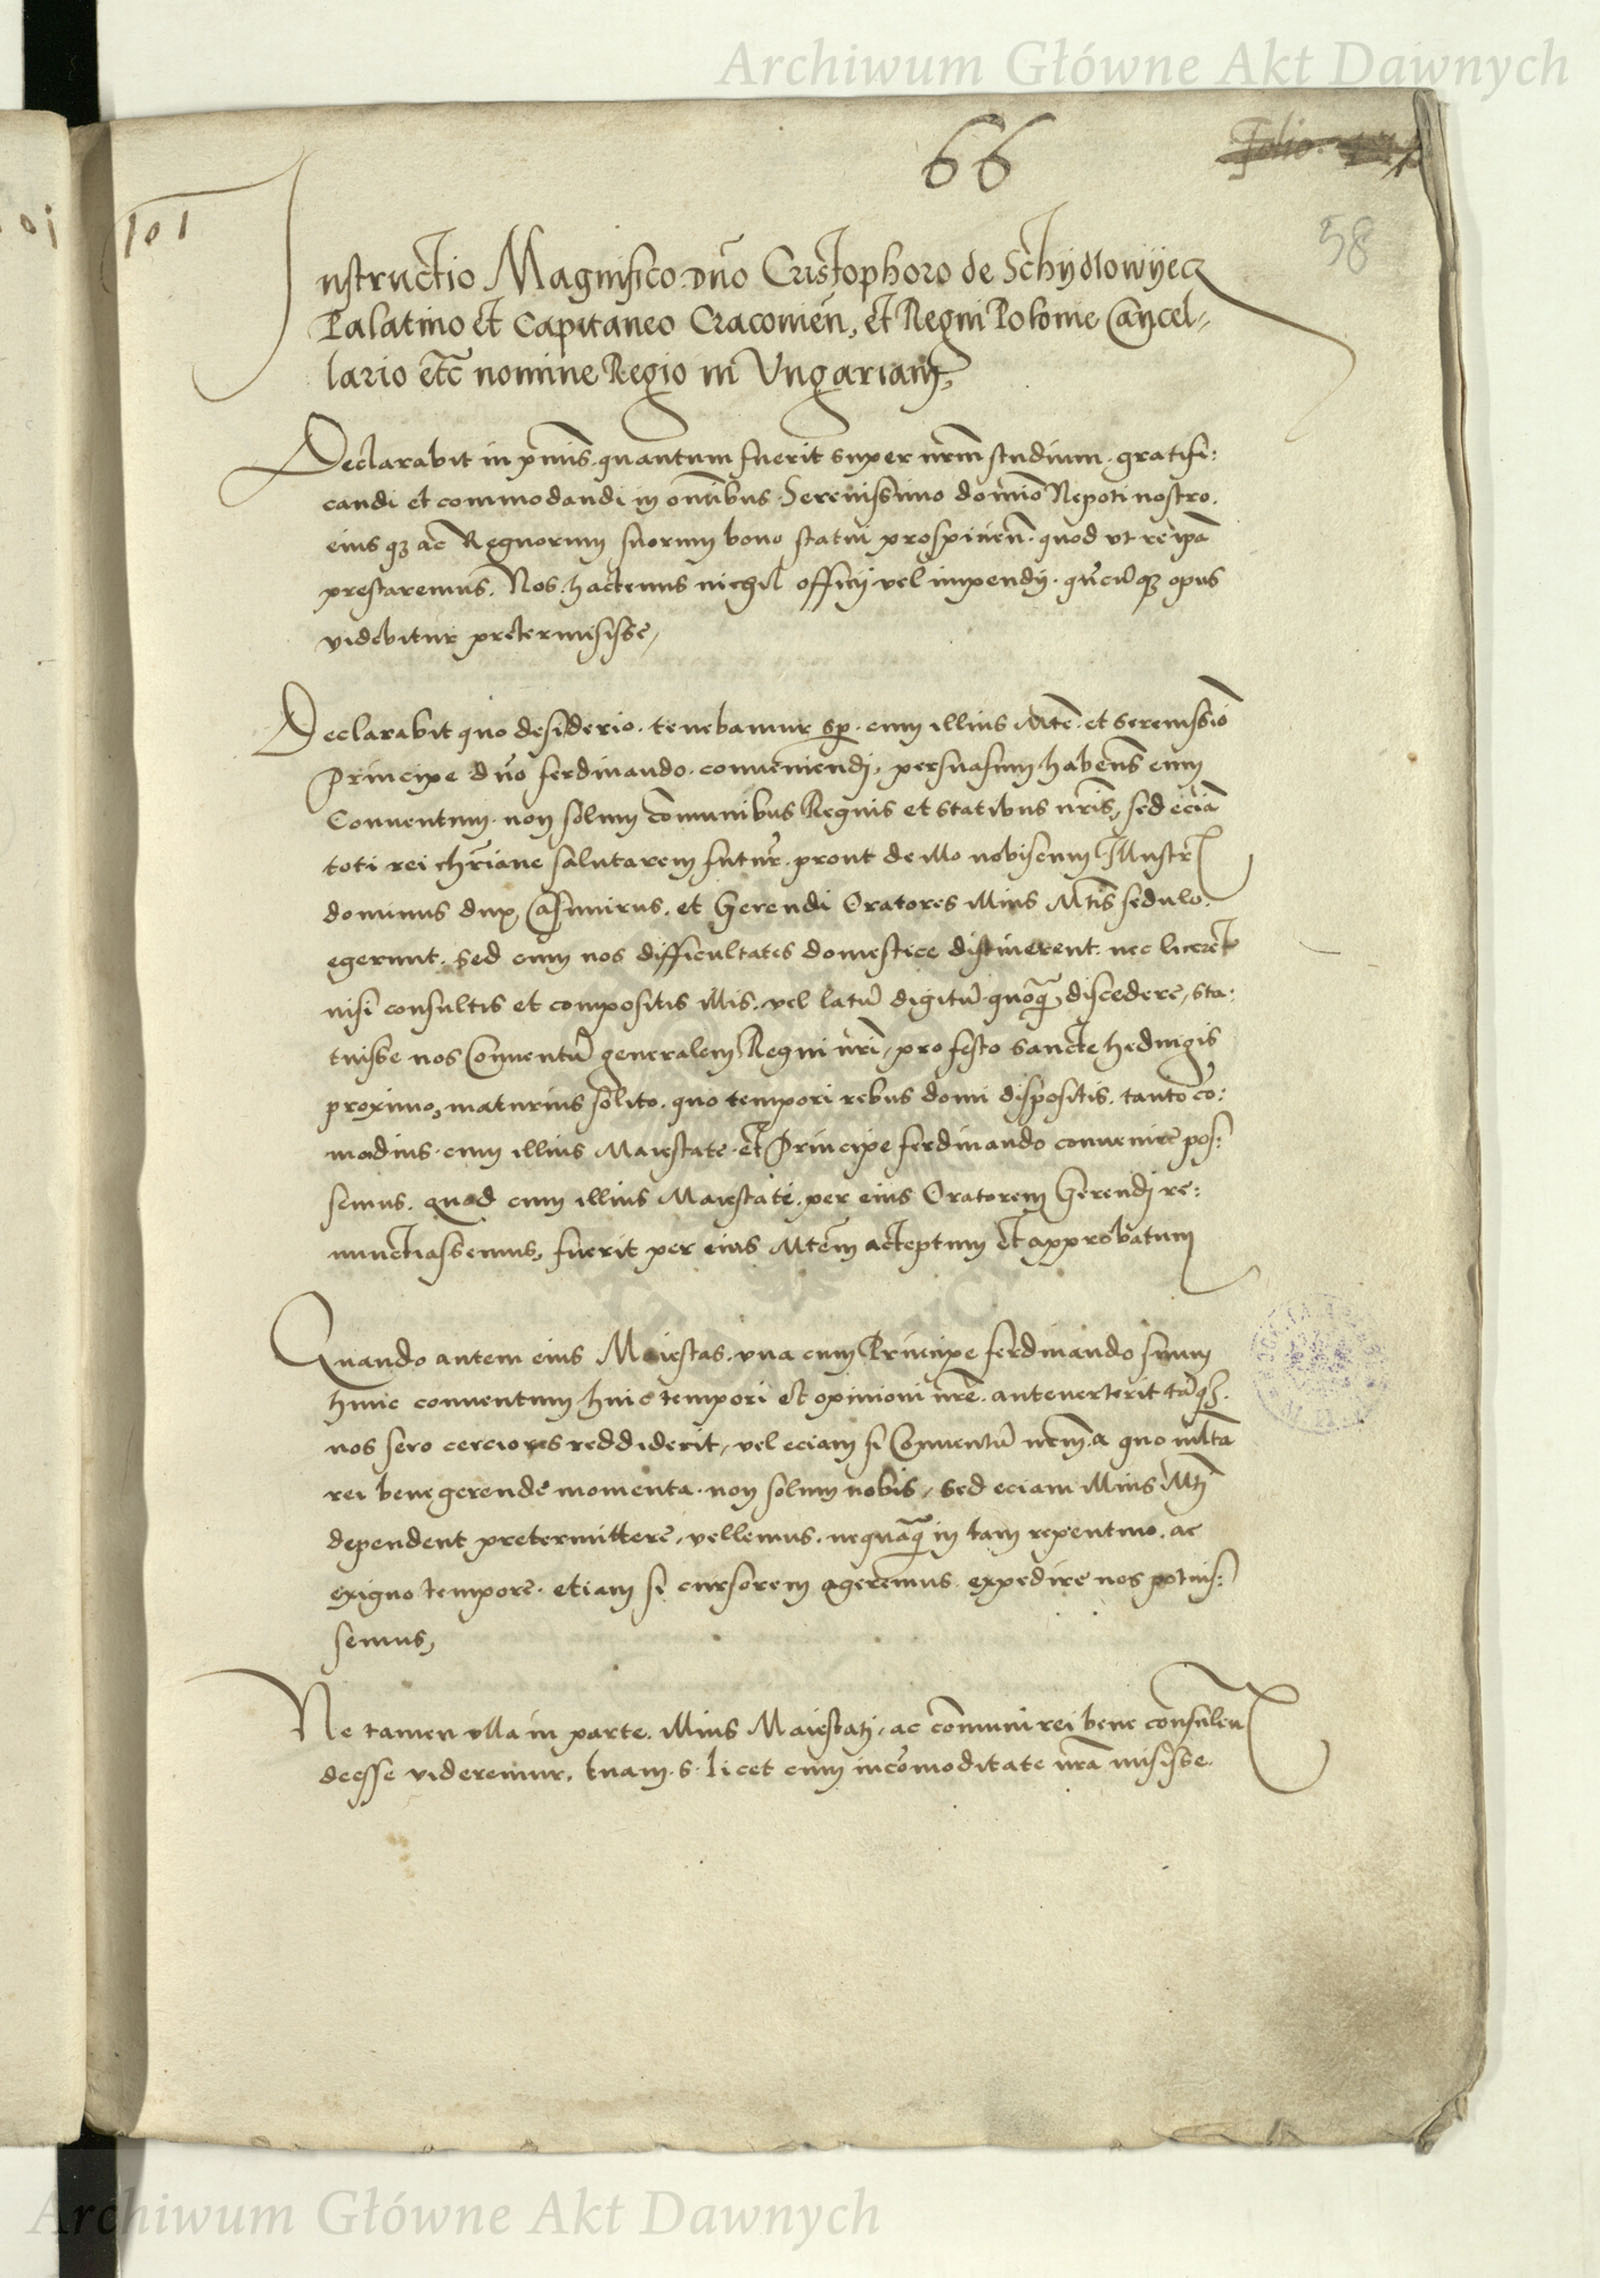 Archiwum Główne Akt Dawnych
66
Folio
101
58
Instructio Magnifico dno Cristophoro de Schydlowyecz
Palatino et Capitaneo Cracovien, et Regni Polonie Cancel-
lario etc nomine Regio in Ungariam,
Declarabit in primis quantum fuerit super nrm studium gratifi:
candi et commodandi in omnibus Serenissimo domino Nepoti nostro.
eius q3 ac Regnorum suorum bono statui prospicien. quod ut re ipa
prestaremus. Nos hactenus nichil officij vel impendij. qucu q3 opus
videbitur pretermisisse,
Declarabit quo desiderio tenebamur sp. cum illius Mte. et serenissio
Principe dno ferdinando conveniendi, persuasum habens eum
Conventum non solum comunibus Regnis et statibus nris, sed ecia
toti rei chriane salutarem futur. prout de illo nobiscum Illustr
dominus dux Casimirus. et Gerendi Oratores illius Mtis sedulo.
egerunt. sed cum nos difficultates domestice distinerent. nec liceret
nisi consultis et compositis illis. vel latu digitu quoq discedere, sta:
tuisse nos Conventu generalem Regni nri, pro festo sancte hedvigis
proximo, maturius solito. quo tempori rebus domi dispositis. tanto co:
modius cum illius Maiestate et Principe ferdinando convenire pos:
semus. quod cum illius Maiestati per eius Oratorem Gerendi re:
nunctiassemus, fuerit per eius Mtem acceptum et approbatum
Quando autem eius Maiestas. una cum Principe ferdinando suum
hunc conventum huic tempori et opinioni nre. anteverterit
nos sero cerciores reddiderit, vel eciam si Conventu nrm. a quo mlta
rei bene gerende momenta. non solum nobis, sed eciam illius Mti
dependent pretermittere, vellemus. nequaq in tam repentino. ac
exiguo tempore. etiam si cursorem ageremus. expedire nos potuis:
semus,
Ne tamen ulla in parte. illius Maiestati, ac comuni rei bene consulen
deesse videremur. tuam. s. licet cum incomoditate nra misisse.
Archiwum Główne Akt Dawnych